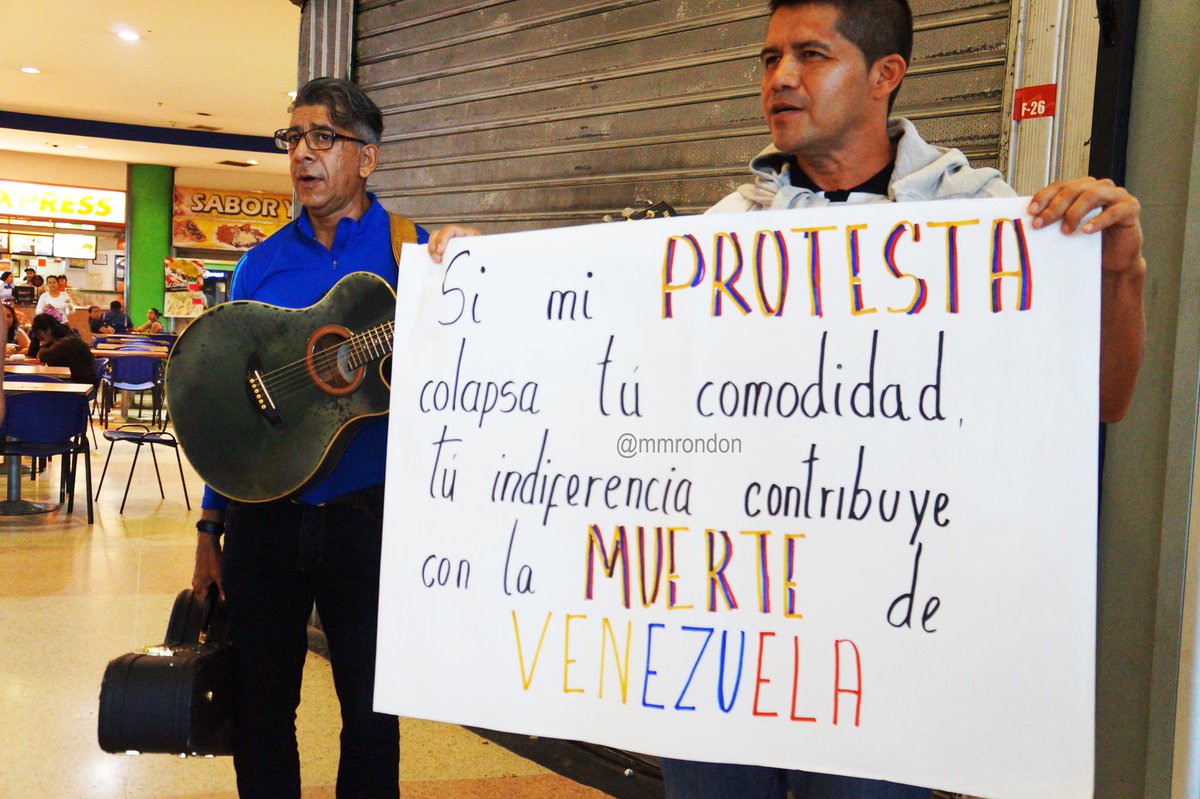 XPRESS
SABOR Y
F-26
Si mi PROTESTA
colapsa tú comodidad,
@mmrondon
tú indiferencia contribuye
con la MUERTE de
VENEZUELA